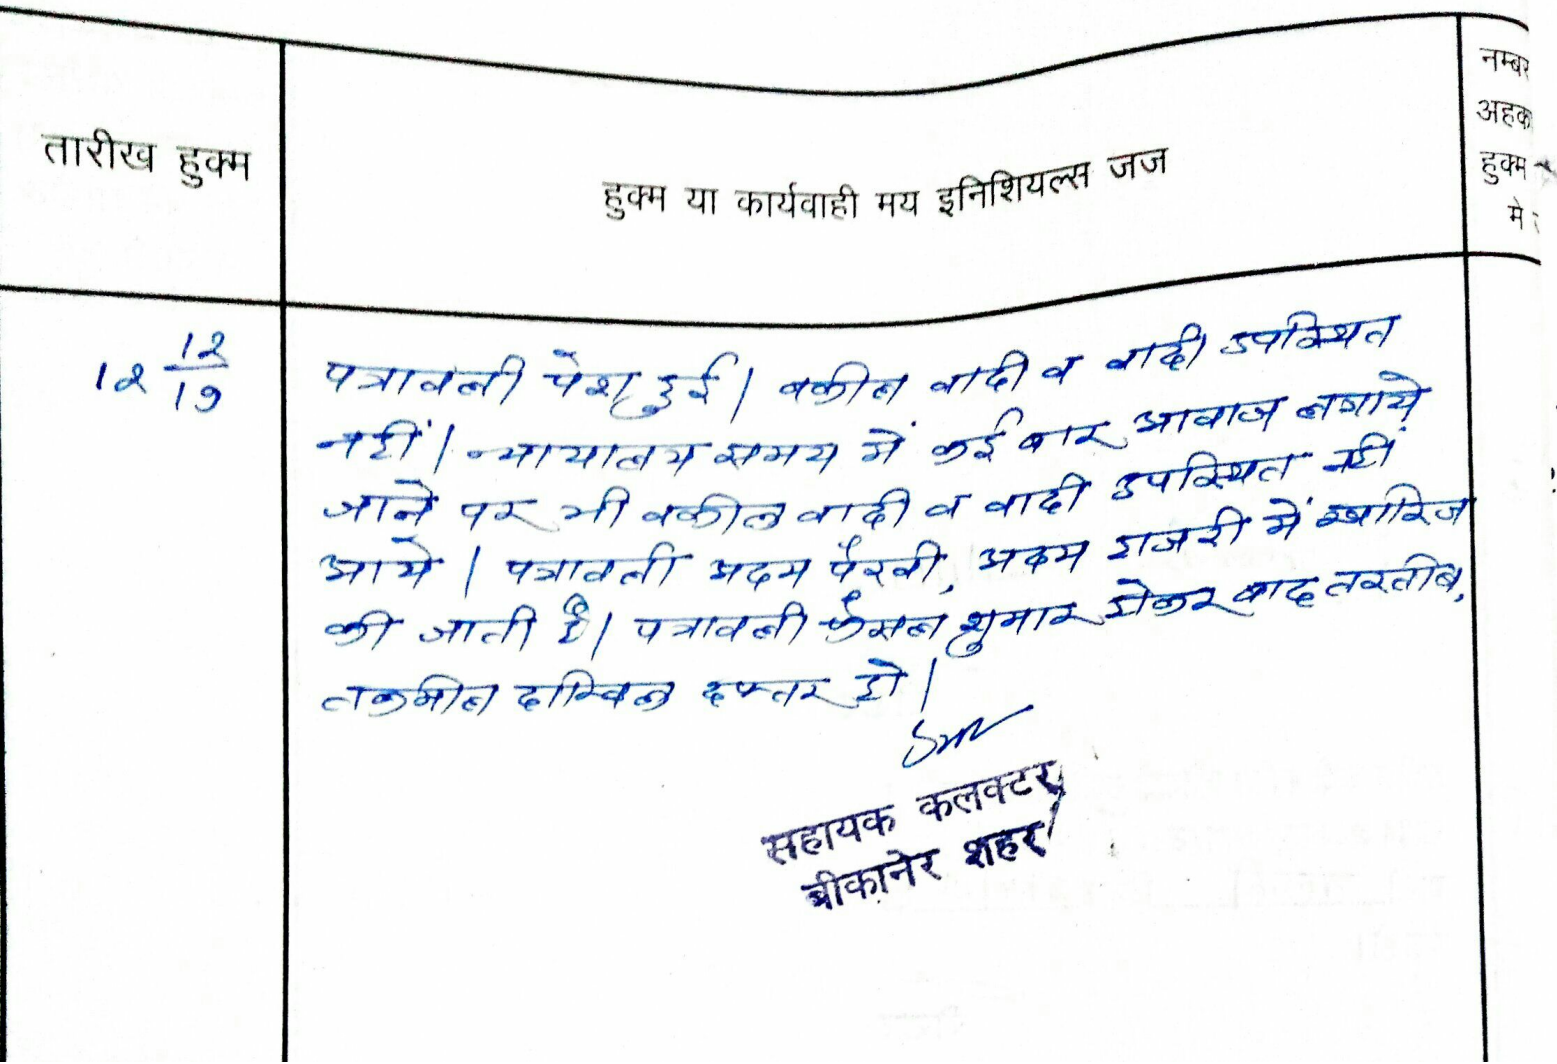 तारीख हुक्म
हुक्म या कार्यवाही मय इनिशियल्स जज
नम्बर
अहका
हुक्म
मे
12 12/19
पत्रावली पेश हुई। वकील वादी व वादी उपस्थित
नहीं। न्यायालय समय में कई बार आवाज लगाये
जाने पर भी वकील वादी व वादी उपस्थित नहीं
आये। पत्रावली अदम पैरवी, अदम हाजरी में खारिज
की जाती है। पत्रावली फैसल शुमार होकर बाद तरतीब,
तकमील दाखिल दफ्तर हो।
सहायक कलक्टर
बीकानेर शहर